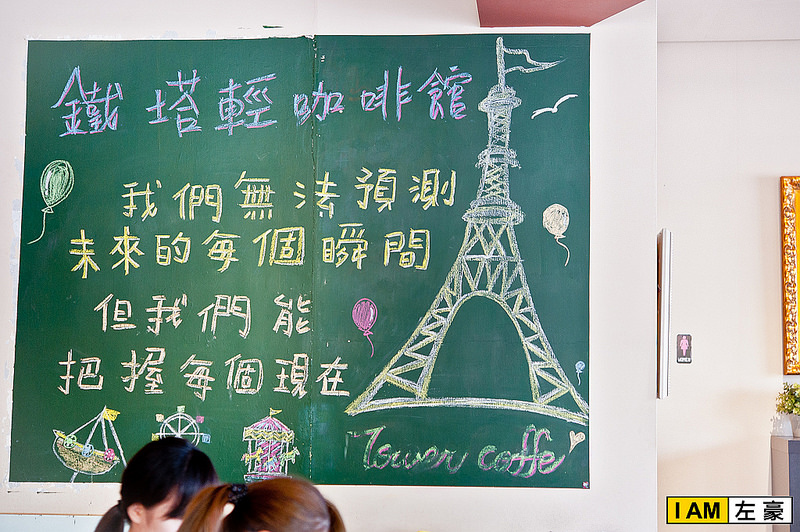 鐵塔輕咖啡館
我們無法預測
未來的每個瞬間
但我們能
把握每個現在
Tower caffe
I AM 左豪